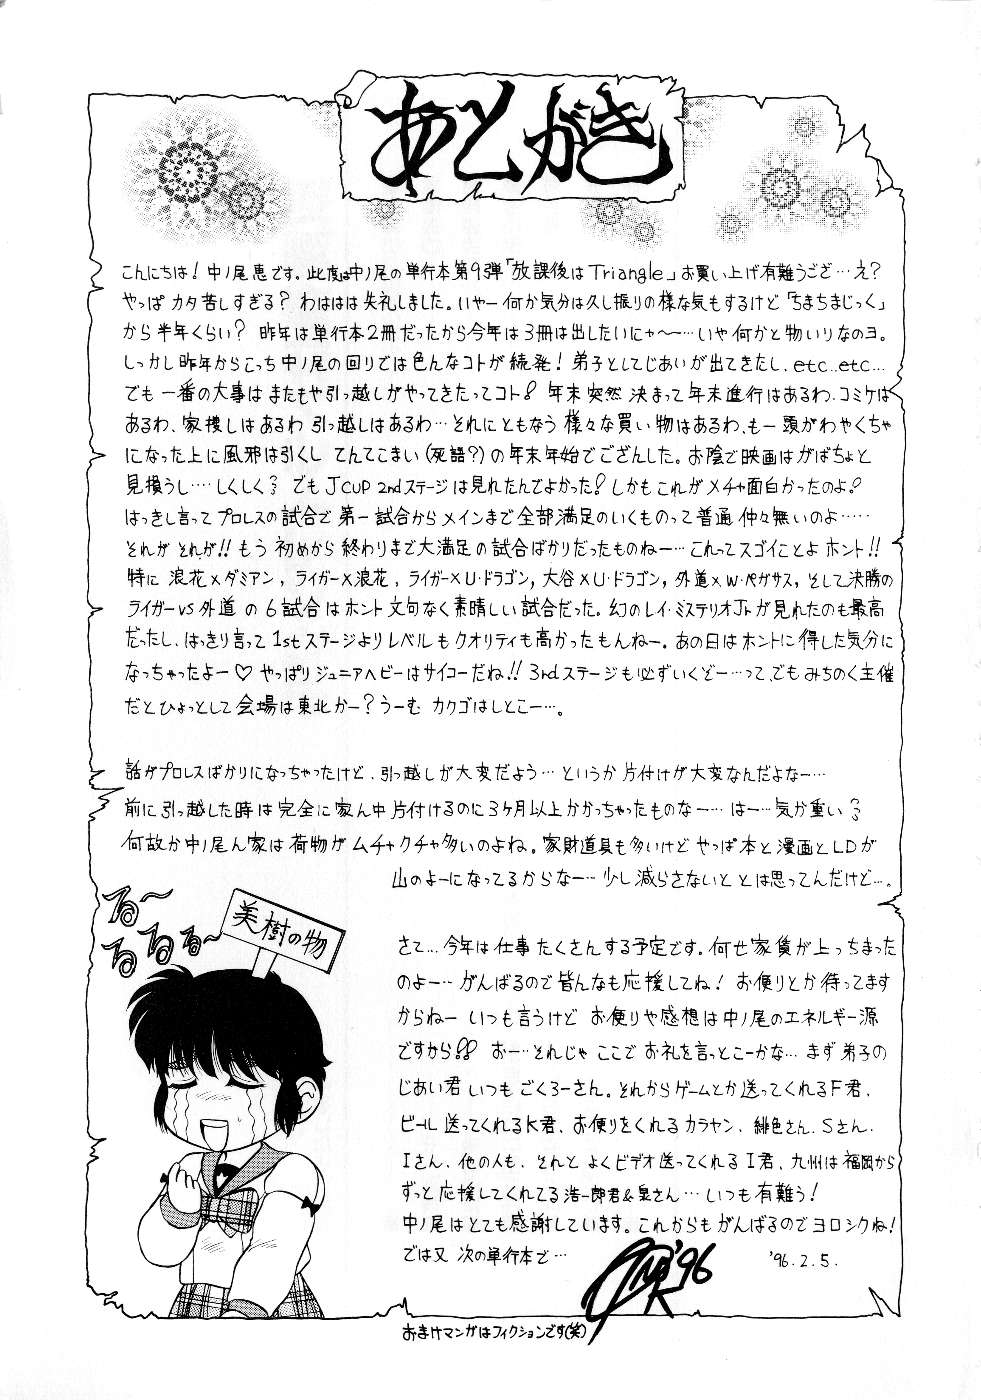 あとがき
こんにちは！中ノ尾恵です。此度は中ノ尾の単行本第9弾「放課後はTriangle」お買い上げ有難うござ…え？
やっぱカタ苦しすぎる？わははは失礼しました。いやー何か気分は久し振りの様な気もするけど「ちまちまじっく」
から半年くらい？昨年は単行本2冊だったから今年は3冊は出したいにゃ〜…いや何かと物いりなのヨ。
しっかし昨年からこっち中ノ尾の回りでは色んなコトが続発！弟子としてじあいが出てきたし、etc..etc…
でも一番の大事はまたもや引っ越しがやってきたってコト！年末突然決まって年末進行はあるわ、コミケは
あるわ、家捜しはあるわ引っ越しはあるわ…それにともなう様々な買い物はあるわ、もー頭がわやくちゃ
になった上に風邪は引くしてんてこまい（死語？）の年末年始でござんした。お陰で映画はがばちょと
見損うし……しくしく でもJCUP 2ndステージは見れたんでよかった！しかもこれがメチャ面白かったのよ！
はっきし言ってプロレスの試合で第一試合からメインまで全部満足のいくものって普通仲々無いのよ……
それがそれが!!もう初めから終わりまで大満足の試合ばかりだったものねー…これってスゴイことよホント!!
特に浪花×ダミアン，ライガー×浪花，ライガー×U・ドラゴン，大谷×U・ドラゴン，外道×W・ペガサス，そして決勝の
ライガーvs外道の6試合はホント文句なく素晴しい試合だった。幻のレイ・ミステリオJrが見れたのも最高
だったし、はっきり言って1stステージよりレベルもクオリティも高かったもんねー。あの日はホントに得した気分に
なっちゃったよー♡やっぱりジュニアヘビーはサイコーだね!!3rdステージも必ずいくぞー…って、でもみちのく主催
だとひょっとして会場は東北かー？うーむカクゴはしとこー…。
話がプロレスばかりになっちゃったけど、引っ越しが大変だよう…というか片付けが大変なんだよなー…
前に引っ越した時は完全に家ん中片付けるのに3ヶ月以上かかっちゃったものなー…はー…気が重い
何故か中ノ尾ん家は荷物がムチャクチャ多いのよね。家財道具も多いけどやっぱ本と漫画とLDが
山のよーになってるからなー…少し減らさないととは思ってんだけど…。
る〜
るるる〜
美樹の物
さて…今年は仕事たくさんする予定です。何せ家賃が上っちまった
のよー…がんばるので皆んなも応援してね！お便りとか待ってます
からねーいつも言うけどお便りや感想は中ノ尾のエネルギー源
ですから!!おー…それじゃここでお礼を言っとこーかな…まず弟子の
じあい君いつもごくろーさん。それからゲームとか送ってくれるF君、
ビール送ってくれるK君、お便りをくれるカラヤン、緋色さん、Sさん、
Iさん、他の人も、それとよくビデオ送ってくれるI君、九州は福岡から
ずっと応援してくれてる浩一郎君&泉さん…いつも有難う！
中ノ尾はとても感謝しています。これからもがんばるのでヨロシクね！
では又次の単行本で…
'96
'96.2.5.
おまけマンガはフィクションです(笑)